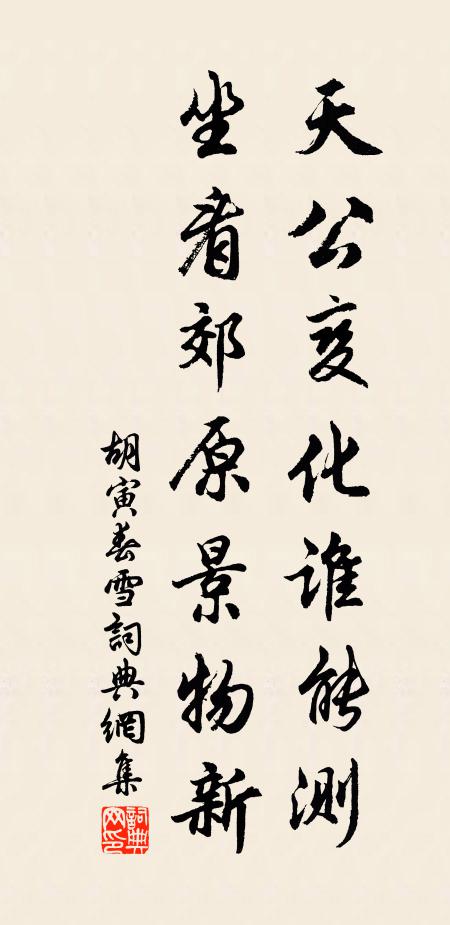 天公变化谁能測
坐看郊原景物新
胡寅春雪詞典網集
詞典网印